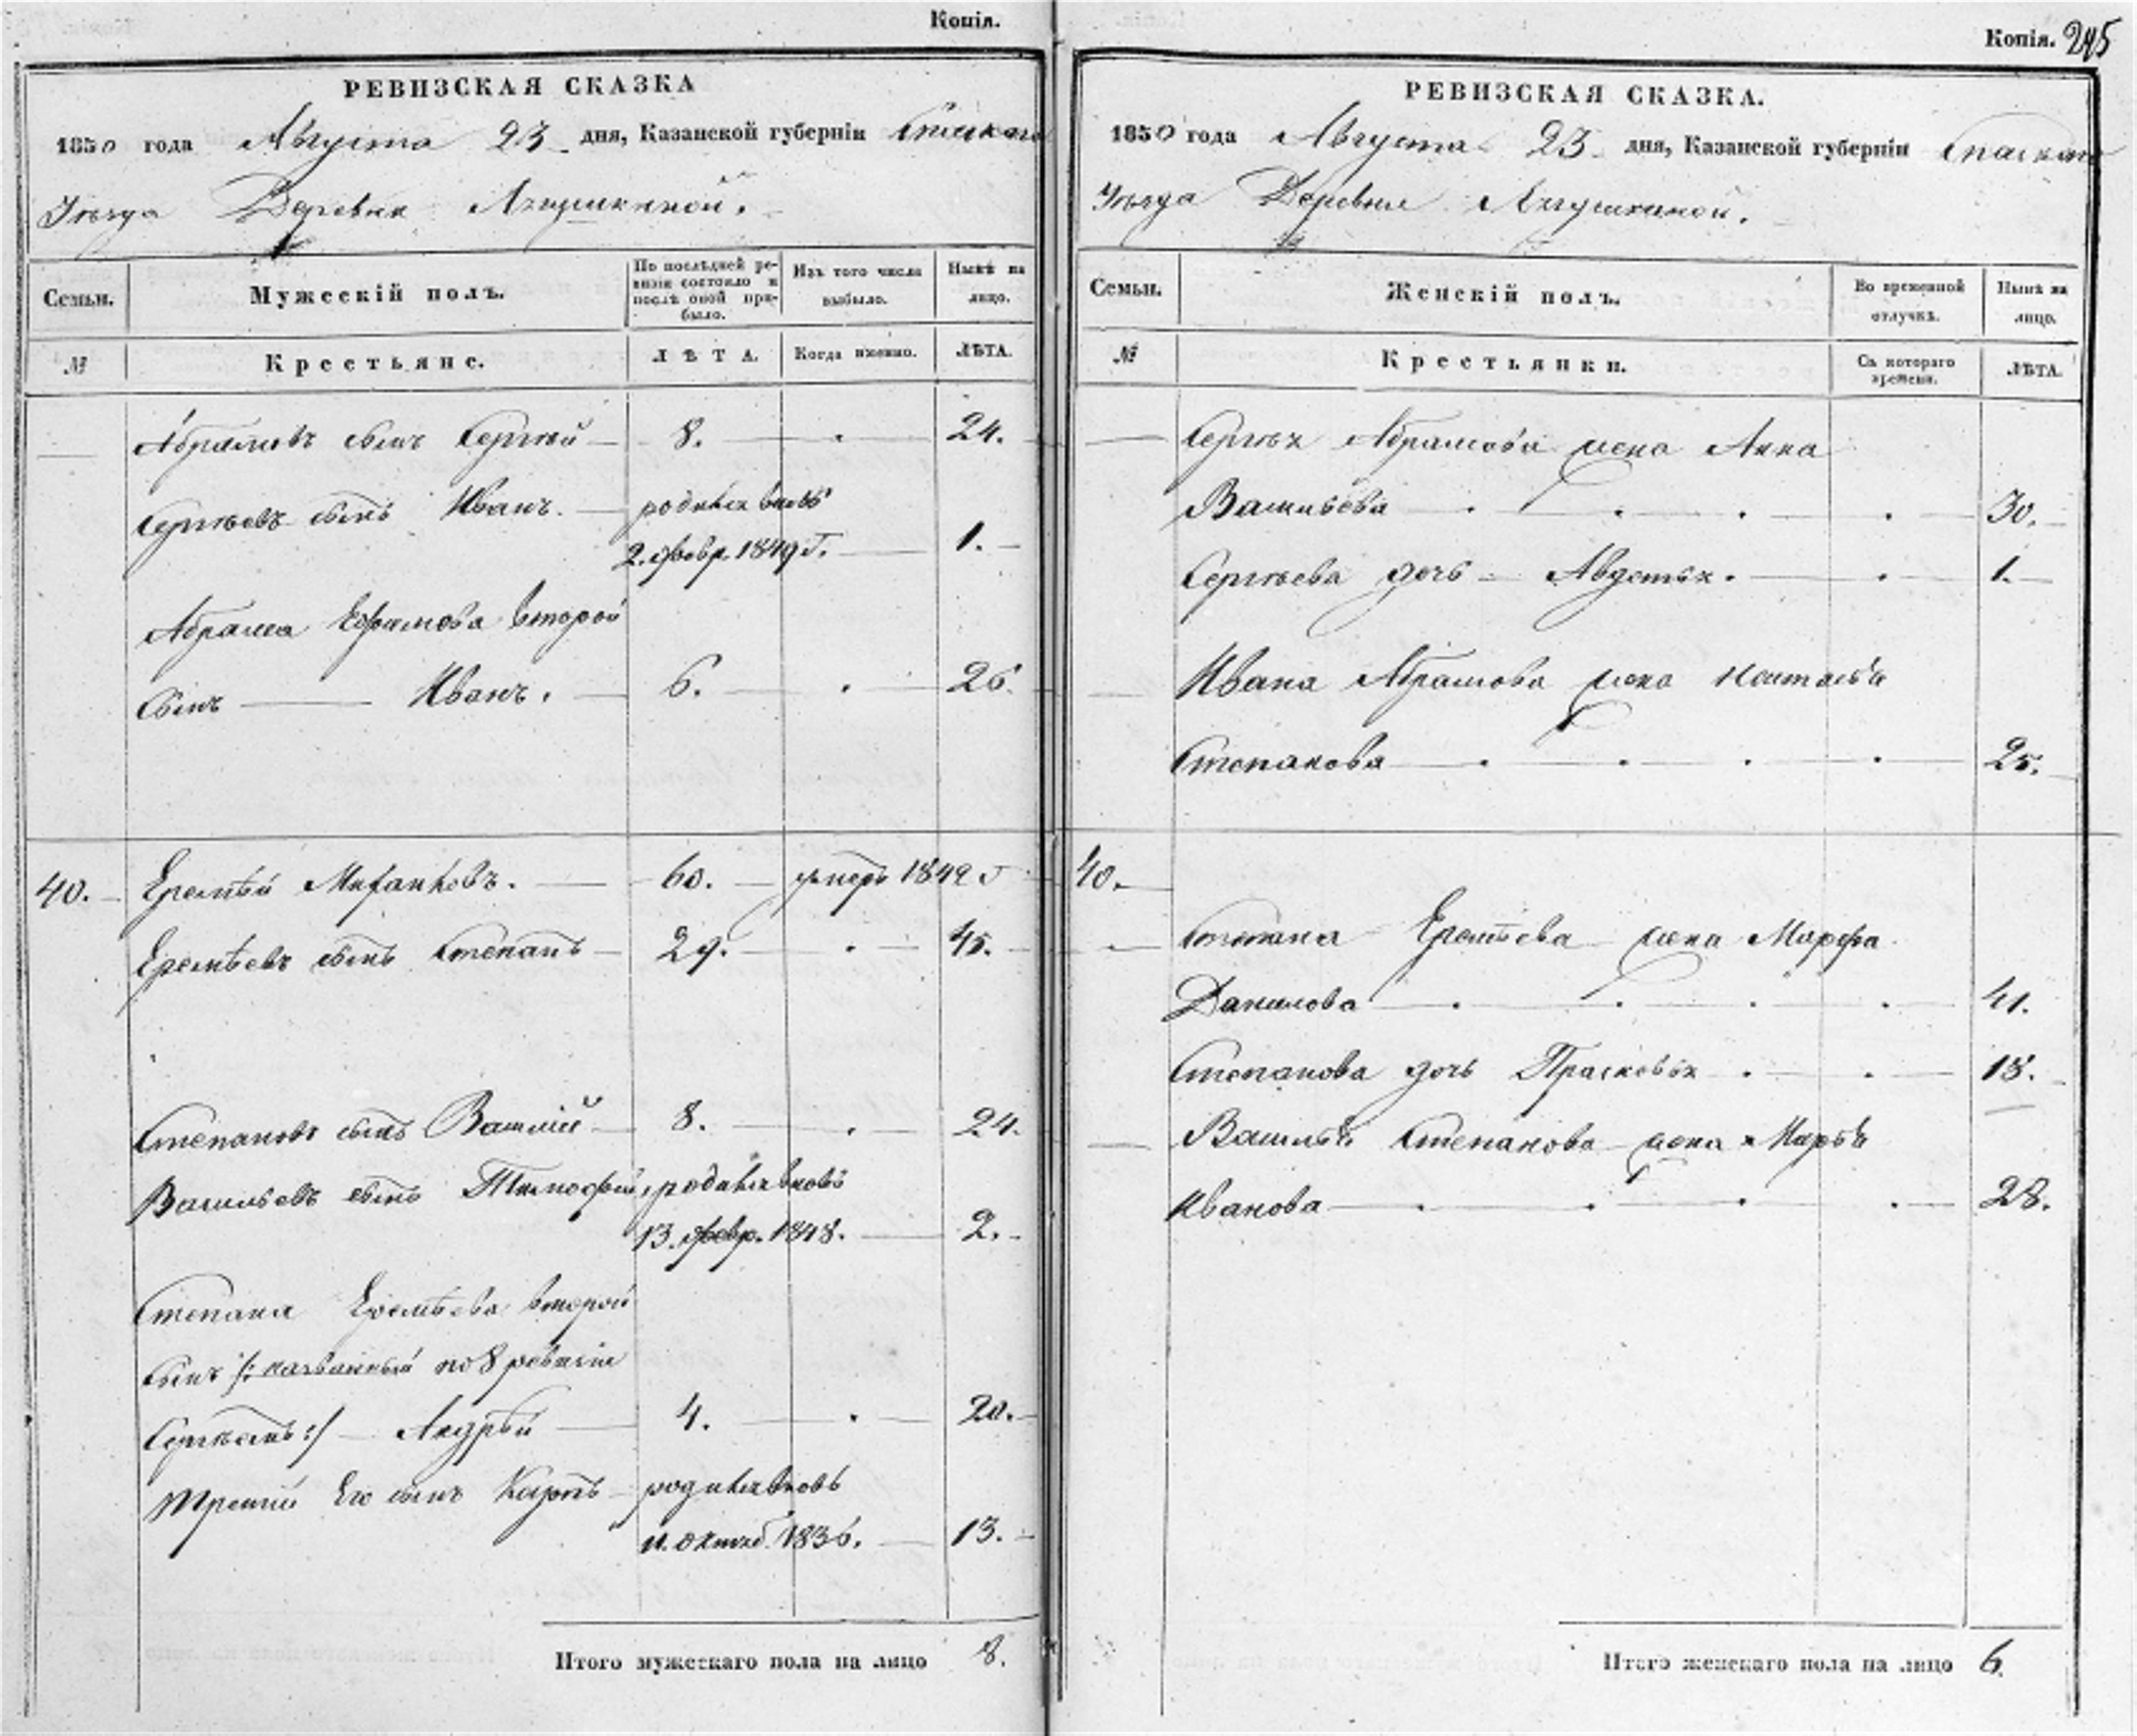 Копія.
РЕВИЗСКАЯ СКАЗКА
1850 года Августа 23 дня, Казанской губерніи Спаскаго
Уѣзда Деревни
Семьи.
Мужескій полъ.
По послѣдней ре-
визіи состояло и
послѣ оной при-
было.
Изъ того числа
выбыло.
Нынѣ на
лицо.
№
Крестьяне.
ЛѢТА.
Когда именно.
ЛѢТА.
Абрамовъ сынъ Сергѣй 8. 24.
Сергѣевъ сынъ Иванъ. родился вновь
2. февр. 1849 г. 1.
Абрама Ефремова второй
сынъ Иванъ. 6. 26.
40. Еремѣй 60. умеръ 1849 г
Еремѣевъ сынъ Степанъ 29. 45.
Степановъ сынъ Василій 8. 24.
Васильевъ сынъ Тимофей, родился вновь
13. февр. 1848. 2.
Степана Еремѣева второй
сынъ /: названный по 8 ревизіи
Сергѣемъ :/ Андрей 4. 20.
третій Его сынъ Карпъ родился вновь
11. Октяб. 1836. 13.
Итого мужескаго пола на лицо 8.
Копія. 245
РЕВИЗСКАЯ СКАЗКА.
1850 года Августа 23 дня, Казанской губерніи Спаскаго
Уѣзда Деревни
Семьи.
Женскій полъ.
Во временной
отлучкѣ.
Нынѣ на
лицо.
№
Крестьянки.
Съ котораго
времени.
ЛѢТА.
Сергѣя Абрамова жена Анна
Васильева 30.
Сергѣева дочь Авдотья. 1.
Ивана Абрамова жена Наталья
Степанова 25.
40.
Степана Еремѣева жена Марфа
Данилова 41.
Степанова дочь Прасковья 18.
Василья Степанова жена Марья
Иванова 28.
Итого женскаго пола на лицо 6.